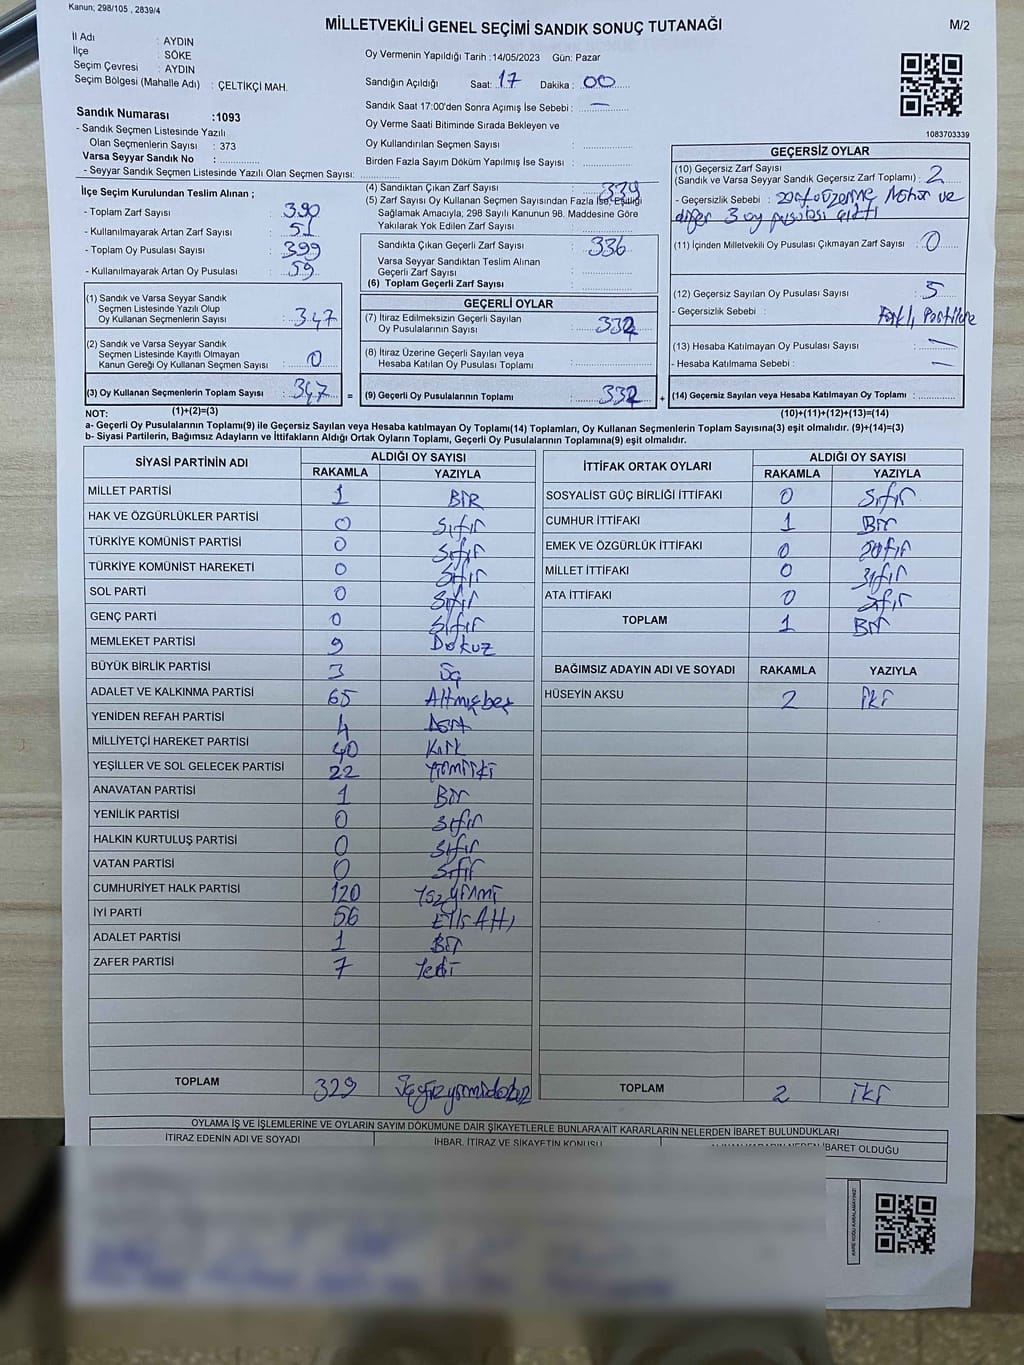 Kanun; 298/105 , 2839/4
MİLLETVEKİLİ GENEL SEÇİMİ SANDIK SONUÇ TUTANAĞI
M/2
İl Adı : AYDIN
İlçe : SÖKE
Seçim Çevresi : AYDIN
Seçim Bölgesi (Mahalle Adı) : ÇELTİKÇİ MAH.
Oy Vermenin Yapıldığı Tarih : 14/05/2023 Gün: Pazar
Sandığın Açıldığı Saat: 17 Dakika : 00
Sandık Saat 17:00'den Sonra Açımış İse Sebebi : —
Oy Verme Saati Bitiminde Sırada Bekleyen ve
Oy Kullandırılan Seçmen Sayısı :
Birden Fazla Sayım Döküm Yapılmış İse Sayısı :
1083703339
Sandık Numarası :1093
- Sandık Seçmen Listesinde Yazılı
Olan Seçmenlerin Sayısı : 373
Varsa Seyyar Sandık No :
- Seyyar Sandık Seçmen Listesinde Yazılı Olan Seçmen Sayısı:
İlçe Seçim Kurulundan Teslim Alınan ;
- Toplam Zarf Sayısı : 390
- Kullanılmayarak Artan Zarf Sayısı : 51
- Toplam Oy Pusulası Sayısı : 399
- Kullanılmayarak Artan Oy Pusulası : 59
(1) Sandık ve Varsa Seyyar Sandık
Seçmen Listesinde Yazılı Olup
Oy Kullanan Seçmenlerin Sayısı : 347
(2) Sandık ve Varsa Seyyar Sandık
Seçmen Listesinde Kayıtlı Olmayan
Kanun Gereği Oy Kullanan Seçmen Sayısı : 0
(3) Oy Kullanan Seçmenlerin Toplam Sayısı : 347
(1)+(2)=(3)
(4) Sandıktan Çıkan Zarf Sayısı : 339
(5) Zarf Sayısı Oy Kullanan Seçmen Sayısından Fazla İse, Eşitliği
Sağlamak Amacıyla; 298 Sayılı Kanunun 98. Maddesine Göre
Yakılarak Yok Edilen Zarf Sayısı :
Sandıkta Çıkan Geçerli Zarf Sayısı : 336
Varsa Seyyar Sandıktan Teslim Alınan
Geçerli Zarf Sayısı :
(6) Toplam Geçerli Zarf Sayısı :
GEÇERLİ OYLAR
(7) İtiraz Edilmeksizin Geçerli Sayılan
Oy Pusulalarının Sayısı : 332
(8) İtiraz Üzerine Geçerli Sayılan veya
Hesaba Katılan Oy Pusulası Toplamı :
= (9) Geçerli Oy Pusulalarının Toplamı : 332
GEÇERSİZ OYLAR
(10) Geçersiz Zarf Sayısı
(Sandık ve Varsa Seyyar Sandık Geçersiz Zarf Toplamı) : 2
- Geçersizlik Sebebi : Zarf üzerine Mühür ve
diğer 3 oy pusulası çıktı
(11) İçinden Milletvekili Oy Pusulası Çıkmayan Zarf Sayısı : 0
(12) Geçersiz Sayılan Oy Pusulası Sayısı : 5
- Geçersizlik Sebebi : Farklı Partilere
(13) Hesaba Katılmayan Oy Pusulası Sayısı : —
- Hesaba Katılmama Sebebi : —
+ (14) Geçersiz Sayılan veya Hesaba Katılmayan Oy Toplamı :
(10)+(11)+(12)+(13)=(14)
NOT:
a- Geçerli Oy Pusulalarının Toplamı(9) ile Geçersiz Sayılan veya Hesaba katılmayan Oy Toplamı(14) Toplamları, Oy Kullanan Seçmenlerin Toplam Sayısına(3) eşit olmalıdır. (9)+(14)=(3)
b- Siyasi Partilerin, Bağımsız Adayların ve İttifakların Aldığı Ortak Oyların Toplamı, Geçerli Oy Pusulalarının Toplamına(9) eşit olmalıdır.
SİYASİ PARTİNİN ADI ALDIĞI OY SAYISI
RAKAMLA YAZIYLA
MİLLET PARTİSİ 1 BİR
HAK VE ÖZGÜRLÜKLER PARTİSİ 0 Sıfır
TÜRKİYE KOMÜNİST PARTİSİ 0 Sıfır
TÜRKİYE KOMÜNİST HAREKETİ 0 Sıfır
SOL PARTİ 0 Sıfır
GENÇ PARTİ 0 Sıfır
MEMLEKET PARTİSİ 9 Dokuz
BÜYÜK BİRLİK PARTİSİ 3 Üç
ADALET VE KALKINMA PARTİSİ 65 Altmışbeş
YENİDEN REFAH PARTİSİ 4
MİLLİYETÇİ HAREKET PARTİSİ 40 Kırk
YEŞİLLER VE SOL GELECEK PARTİSİ 22 Yirmiiki
ANAVATAN PARTİSİ 1 Bir
YENİLİK PARTİSİ 0 Sıfır
HALKIN KURTULUŞ PARTİSİ 0 Sıfır
VATAN PARTİSİ 0 Sıfır
CUMHURİYET HALK PARTİSİ 120 Yüzyirmi
İYİ PARTİ 56 Elli Altı
ADALET PARTİSİ 1 Bir
ZAFER PARTİSİ 7 Yedi
TOPLAM 329 Üçyüzyirmidokuz
İTTİFAK ORTAK OYLARI ALDIĞI OY SAYISI
RAKAMLA YAZIYLA
SOSYALİST GÜÇ BİRLİĞİ İTTİFAKI 0 Sıfır
CUMHUR İTTİFAKI 1 Bir
EMEK VE ÖZGÜRLÜK İTTİFAKI 0 Sıfır
MİLLET İTTİFAKI 0 Sıfır
ATA İTTİFAKI 0 Sıfır
TOPLAM 1 Bir
BAĞIMSIZ ADAYIN ADI VE SOYADI RAKAMLA YAZIYLA
HÜSEYİN AKSU 2 İki
TOPLAM 2 İki
OYLAMA İŞ VE İŞLEMLERİNE VE OYLARIN SAYIM DÖKÜMÜNE DAİR ŞİKAYETLERLE BUNLARA AİT KARARLARIN NELERDEN İBARET BULUNDUKLARI
İTİRAZ EDENİN ADI VE SOYADI İHBAR, İTİRAZ VE ŞİKAYETİN KONUSU ALINAN KARARIN NEDEN İBARET OLDUĞU
KARE KODU KARALAMAYINIZ!